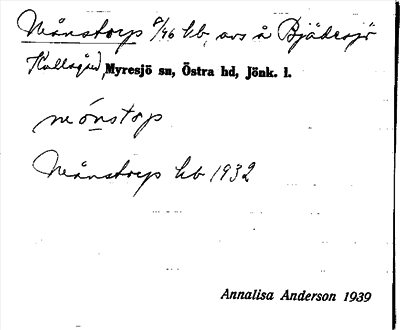 Månstorp 8/46 hb, avs å Bjädesjö
Kullagård, Myresjö sn, Östra hd, Jönk. l.
månstop
Månstorp hb 1932
Annalisa Anderson 1939